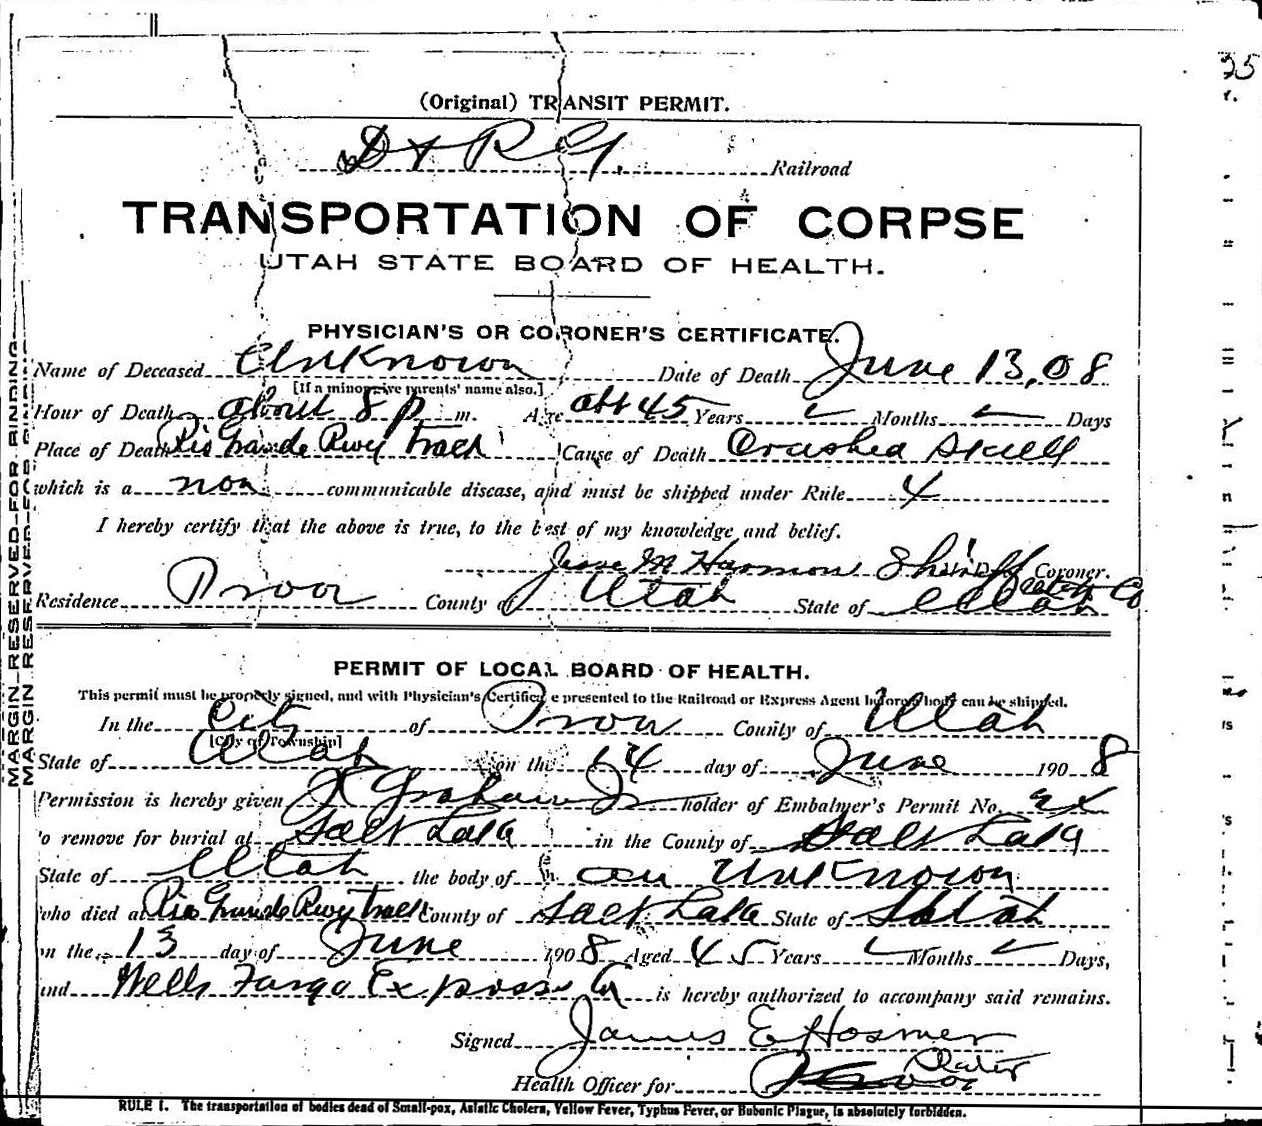 35
(Original) TRANSIT PERMIT.
D & R G. Railroad
TRANSPORTATION OF CORPSE
UTAH STATE BOARD OF HEALTH.
PHYSICIAN'S OR CORONER'S CERTIFICATE.
Name of Deceased Unknown Date of Death June 13, 08
[If a minor give parents' name also.]
Hour of Death about 8 p m. Age abt 45 Years Months Days
Place of Death Rio Grande Rwy Track Cause of Death Crushed Skull
which is a non communicable disease, and must be shipped under Rule 4
I hereby certify that the above is true, to the best of my knowledge and belief.
Jesse M Harmon Sheriff Coroner.
Utah Co
Residence Provo County of Utah State of Utah
PERMIT OF LOCAL BOARD OF HEALTH.
This permit must be properly signed, and with Physician's Certificate presented to the Railroad or Express Agent before body can be shipped.
In the City of Provo County of Utah
[City or Township]
State of Utah on the 14 day of June 1908
Permission is hereby given Graham Jr holder of Embalmer's Permit No.
to remove for burial at Salt Lake in the County of Salt Lake
State of Utah the body of an Unknown
who died at Rio Grande Rwy Track County of Salt Lake State of Utah
on the 13 day of June 1908 Aged 45 Years Months Days,
and Wells Fargo Express Co is hereby authorized to accompany said remains.
Signed James E Hosmer
Health Officer for Provo
RULE 1. The transportation of bodies dead of Small-pox, Asiatic Cholera, Yellow Fever, Typhus Fever, or Bubonic Plague, is absolutely forbidden.
MARGIN RESERVED FOR BINDING
MARGIN RESERVED FOR BINDING